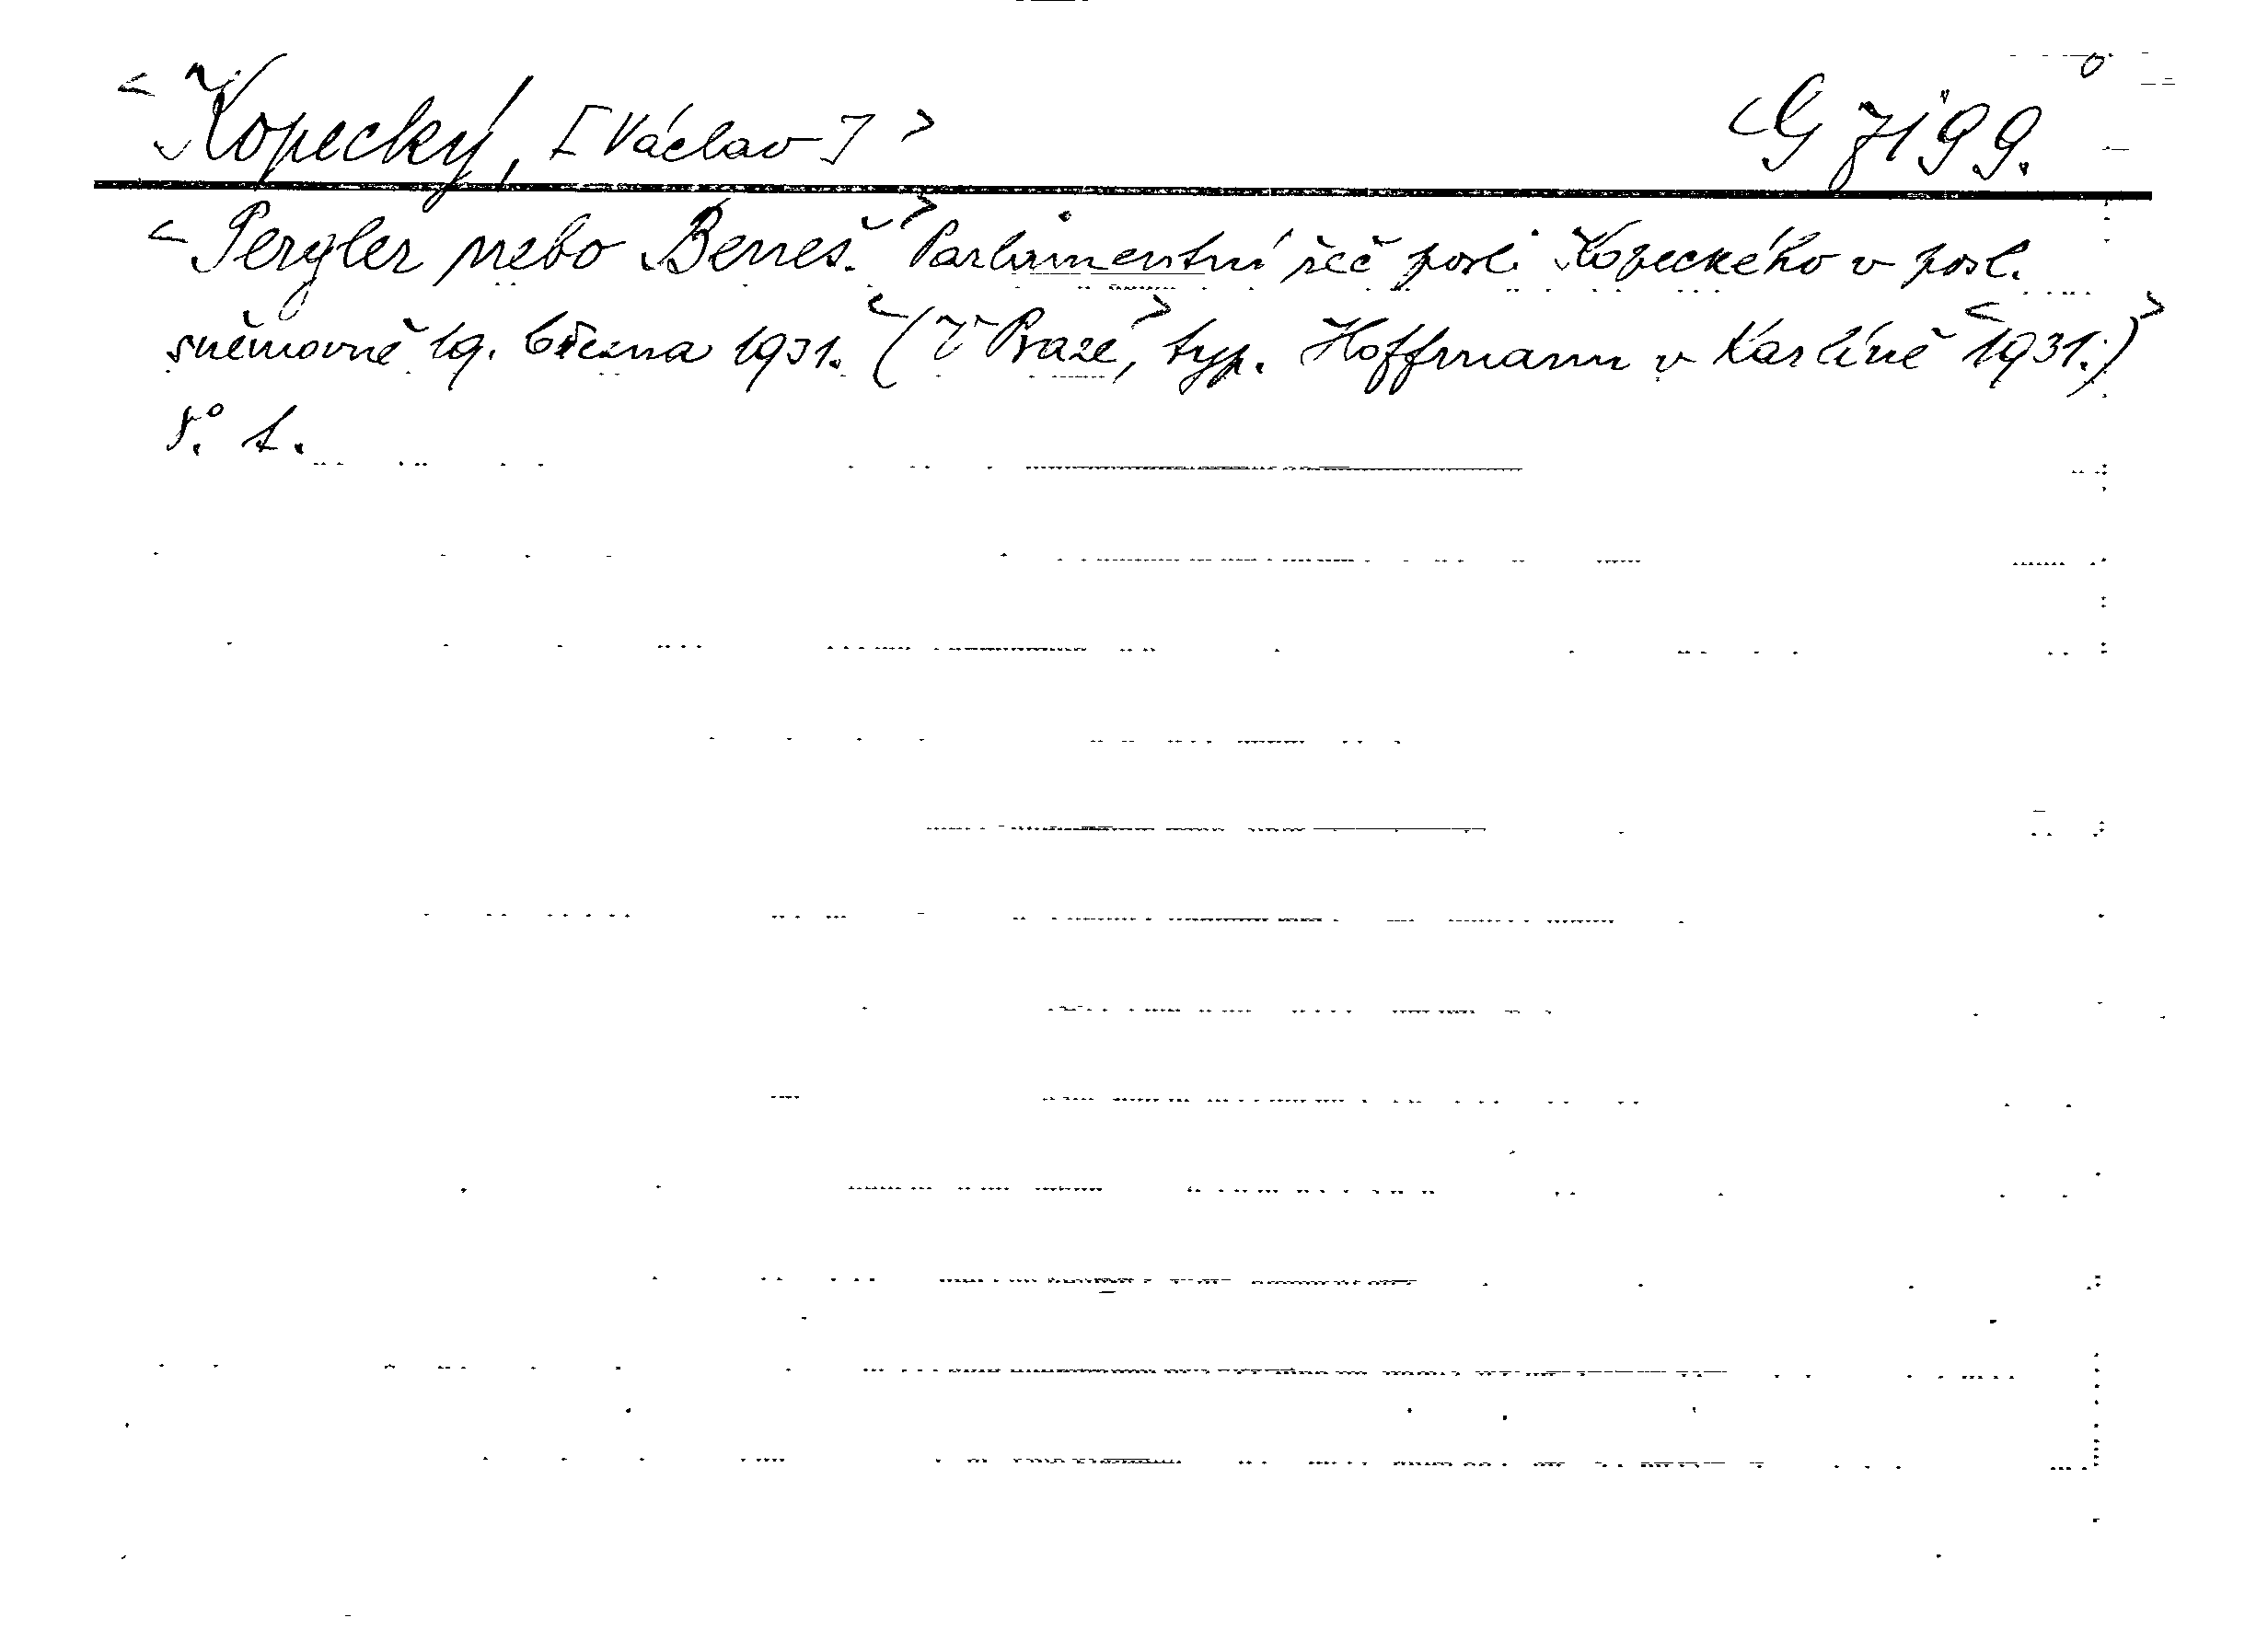 <Kopecký, [Václav]> G 7199.
<Pergler nebo Beneš.> Parlamentní řeč posl. Kopeckého v posl.
sněmovně 19. března 1931. <(V Praze,> typ. Hoffmann v Karlíně <1931.)>
8°. 1.